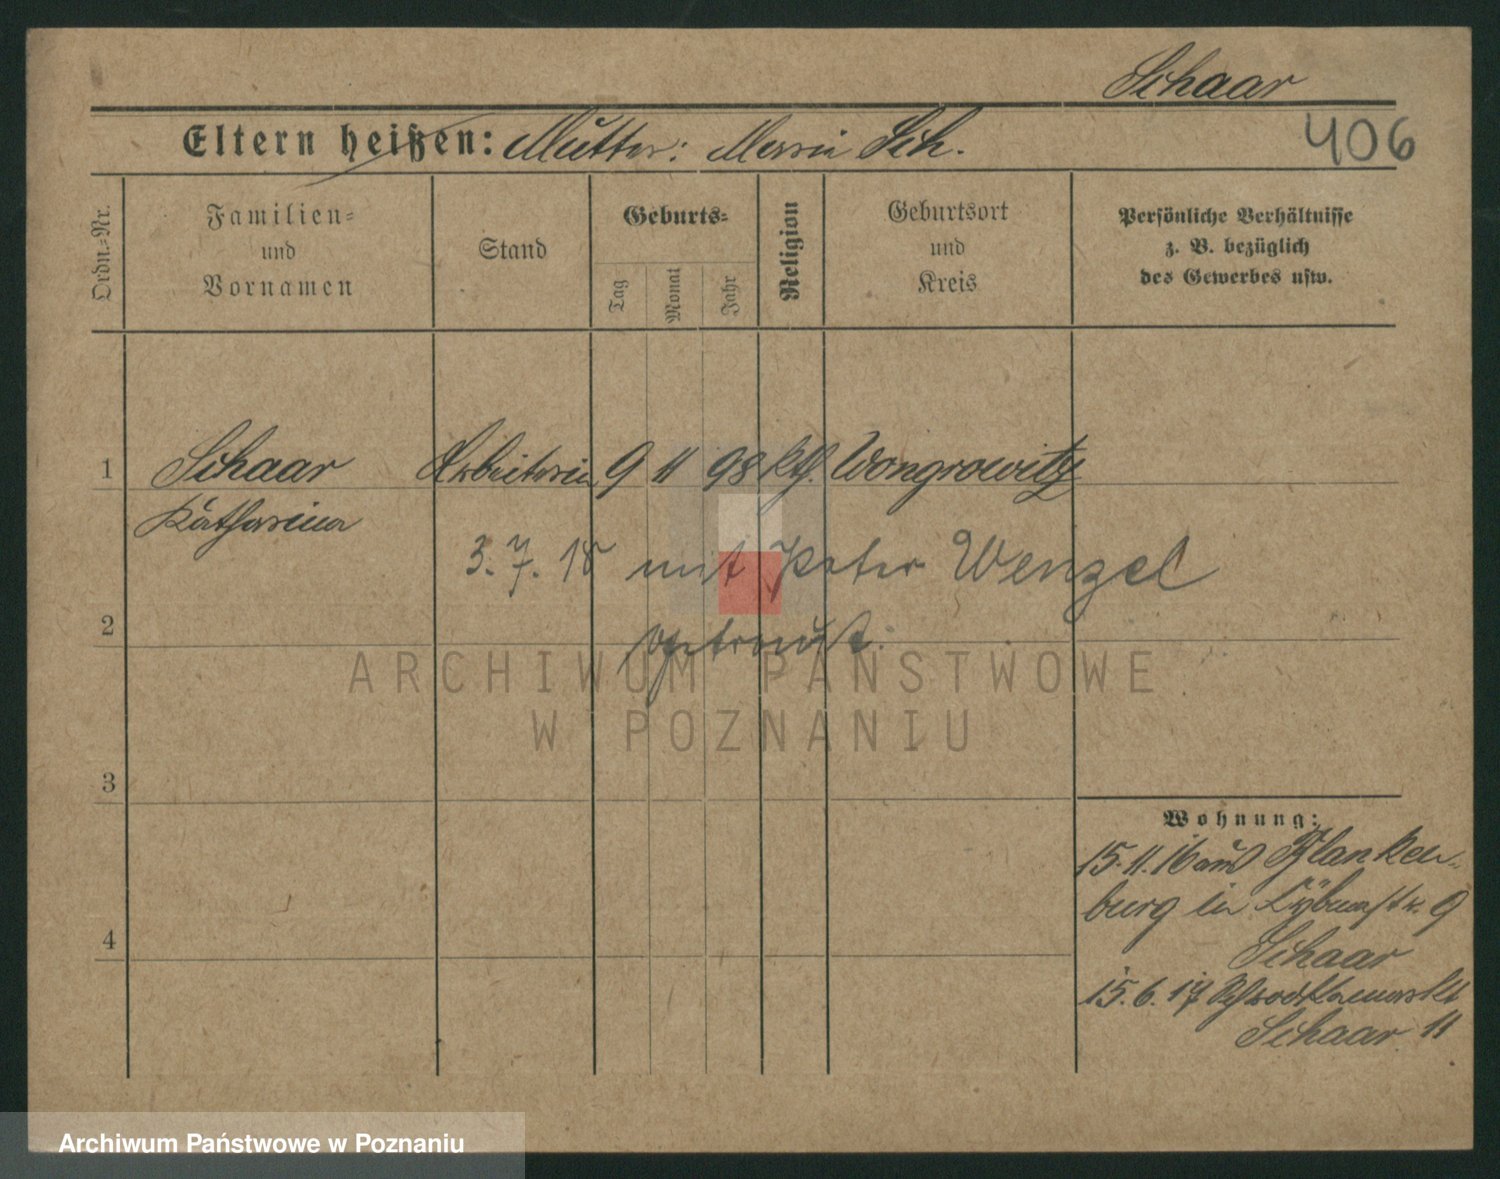 Schaar
406
Eltern heißen: Mutter: Marie Sch.
Ordn.=Nr.
Familien=
und
Vornamen
Stand
Geburts=
Tag
Monat
Jahr
Religion
Geburtsort
und
Kreis
Persönliche Verhältnisse
z. B. bezüglich
des Gewerbes usw.
1 Schaar Arbeiterin 9 11 98 kth. Wongrowitz
Katharina
3. 7. 18 mit Peter Wenzel
2
getraut.
ARCHIWUM PAŃSTWOWE
W POZNANIU
3
4
Wohnung:
15. 11. 16 aus Blanken-
burg in 9
Schaar
15. 6. 17
Schaar 11
Archiwum Państwowe w Poznaniu